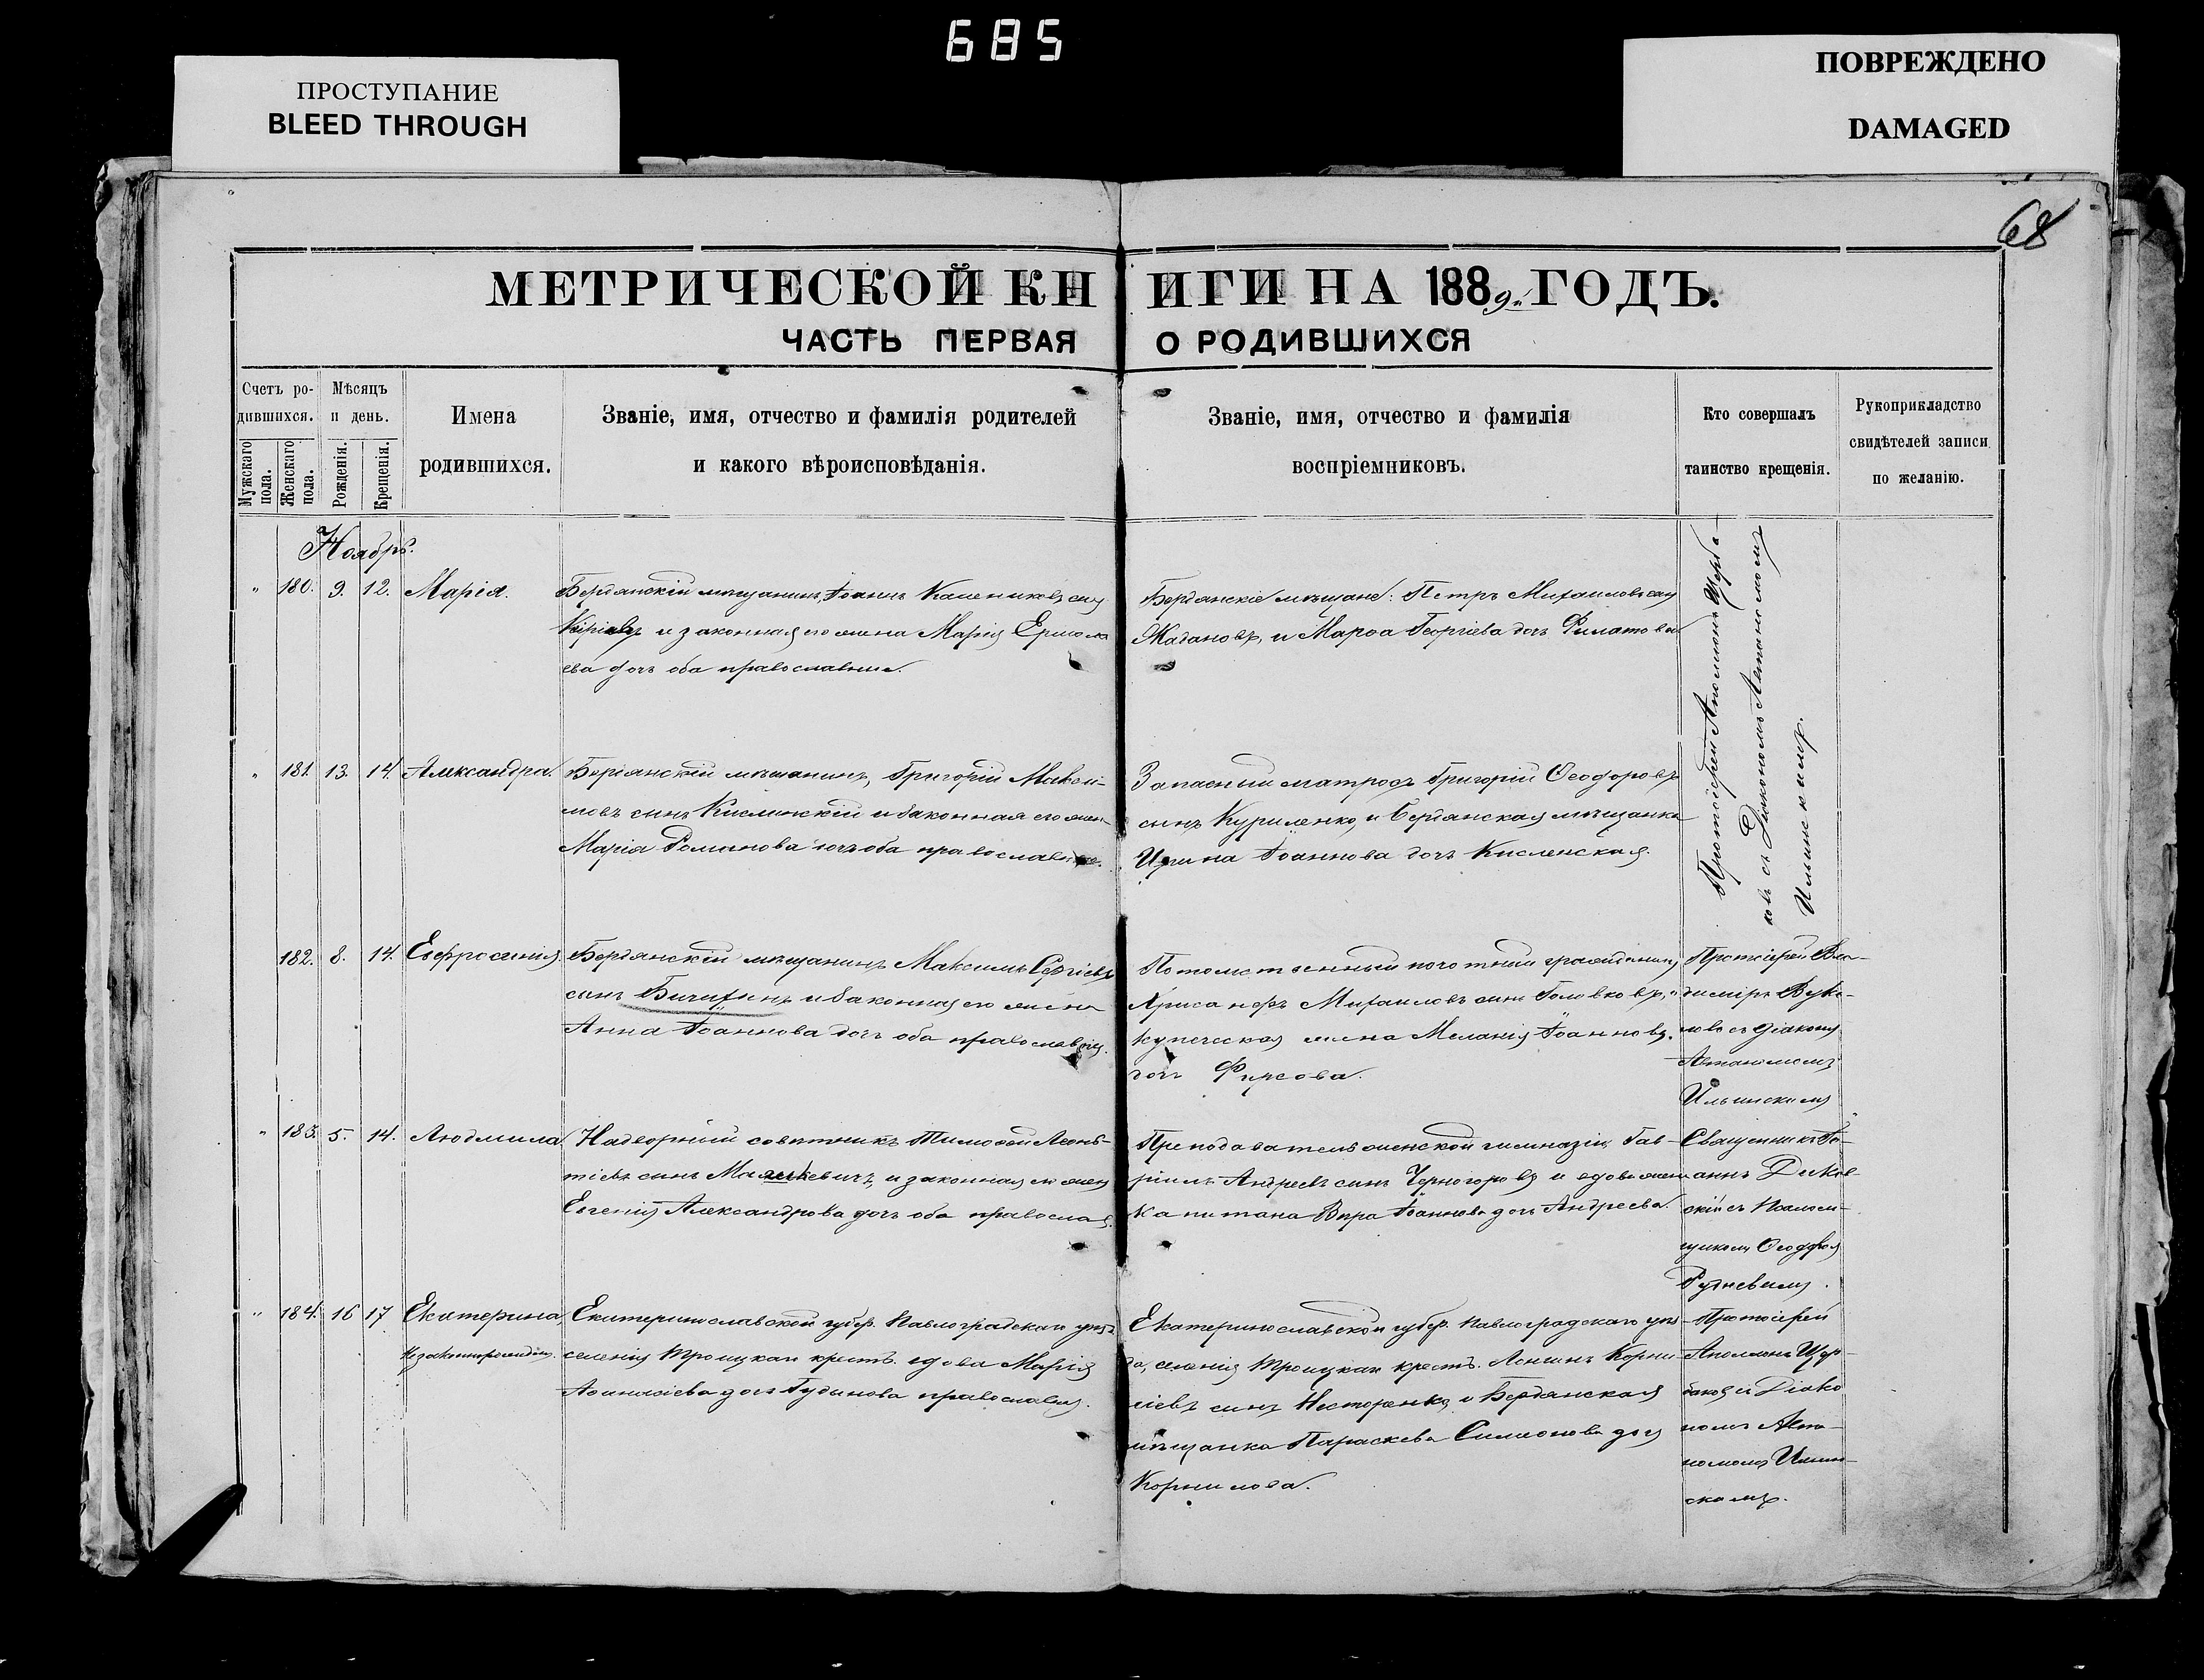 685
ПРОСТУПАНИЕ
BLEED THROUGH
ПОВРЕЖДЕНО
DAMAGED
68
МЕТРИЧЕСКОЙ КНИГИ НА 1889 ГОДЪ.
ЧАСТЬ ПЕРВАЯ О РОДИВШИХСЯ
Счетъ ро-
дившихся.
Мужскаго пола.
Женскаго пола.
Мѣсяцъ
и день.
Рожденія.
Крещенія.
Имена
родившихся.
Званіе, имя, отчество и фамилія родителей
и какого вѣроисповѣданія.
Званіе, имя, отчество и фамилія
воспріемниковъ.
Кто совершалъ
таинство крещенія.
Рукоприкладство
свидѣтелей записи
по желанію.
Ноябрь.
" 180. 9. 12. Марія.
Бердянскій мѣщанинъ, Іоаннъ
и законная его жена Марія Ермола
ева дочь оба православные.
Бердянскіе мѣщане: Петръ Михаиловъ сынъ
Жадановъ, и Марѳа Георгіева дочь Филатова
Протоіерей Аполлонъ Щерба-
ковъ съ Діакономъ Автономомъ
Ильинскимъ.
" 181. 13. 14. Александра.
Бердянскій мѣщанинъ, Григорій Макси-
мовъ сынъ Кислинскій и законная его жен.
Марія Романова дочь оба православные.
Запасный матросъ Григорій Ѳеодоровъ
сынъ Куриленко, и Бердянская мѣщанка
Ирина Іоаннова дочь Кисленская.
182. 8. 14. Евфросинія
Бердянскій мѣщанинъ Максимъ Сергіевъ
сынъ Бичихинъ и законная его жена
Анна Іоаннова дочь оба православн.
Потомственный почотный гражданинъ
Хрисанфъ Михаиловъ сынъ Головковъ, и
купеческая жена Меланія Іоаннова
дочь Фирсова.
Протоіерей Вла-
диміръ
съ діакону
Автономомъ
Ильинскимъ
" 183. 5. 14. Людмила
Надворный совѣтникъ Тимоѳей Леонь-
тіевъ сынъ и законная его жена
Евгенія Александрова дочь оба православ.
Преподаватель женской гимназіи, Гав-
ріилъ Андреевъ сынъ Черногоровъ и вдова жена
Капитана Вѣра Іоаннова дочь Андреева.
Священникъ Іо-
аннъ
скій съ Псалом-
щикомъ Ѳеодоромъ
Рудневымъ.
" 184. 16 17 Екатерина,
Незаконнорожденная.
Екатеринославской губер. Павлоградскаго уѣзд.
селенія Троицкаго крестъ. вдова Марія
Аѳанасіева дочь Гудинова православная.
Екатеринославской губер. Павлоградскаго уѣз-
да, селенія Троицкаго крестъ. Логинъ Корни-
ліевъ сынъ Несторенко, и Бердянская
мѣщанка Параскева Симеонова дочь
Корнилова.
Протоіерей
Аполлонъ Щер-
баковъ съ Діако
номъ Авто-
номомъ Ильин-
скимъ.